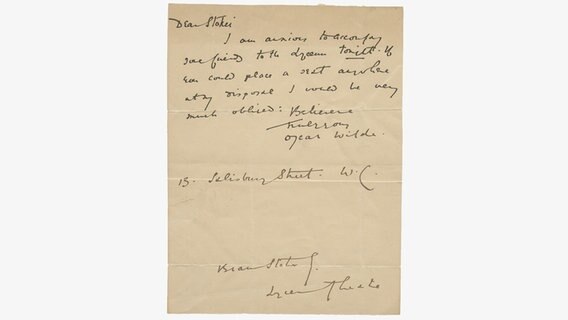 Dear Stoker
I am anxious to accompany
some friends to the Lyceum tonight. If
you could place a seat anywhere
at my disposal I would be very
much obliged: Believe me
truly yours
Oscar Wilde.
13. Salisbury Street. W.C.
Bram Stoker
Lyceum Theatre